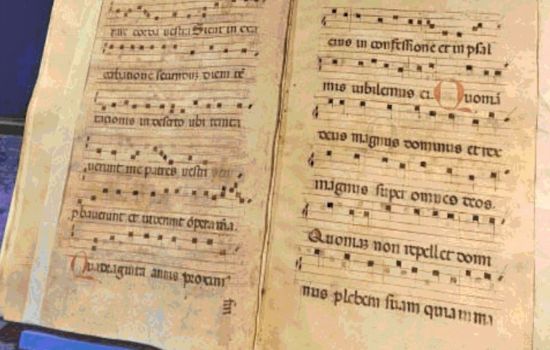 rare corda vestra Sicut in exa
cerbatione secundum diem te
tacionis in deserto ubi tenta
verunt me patres vestri
pbaverunt et viderunt opera ma.
Quadraginta annis proximi
eius in confessione et in psal
mis iubilemus ei. Quoniā
deus magnus dominus et rex
magnus super omnes deos.
Quoniaz non repellet domi
nus plebem suam quia in ma